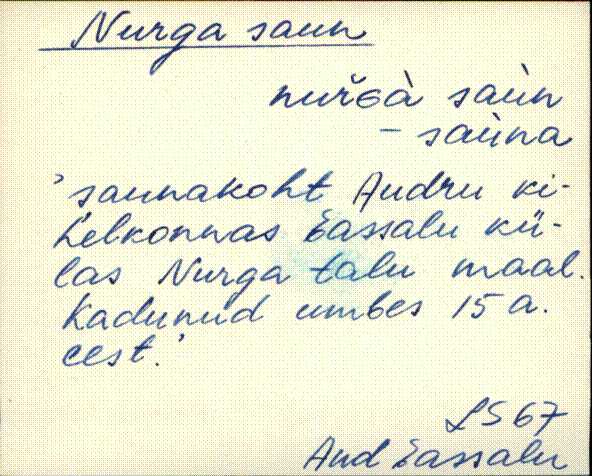 Nurga saun
nuřGà saùn
- saùna
'saunakoht Audru ki-
helkonnas Eassalu kü-
las Nurga talu maal.
Kadunud umbes 15 a.
eest.'
LS 67
Aud Eassalu